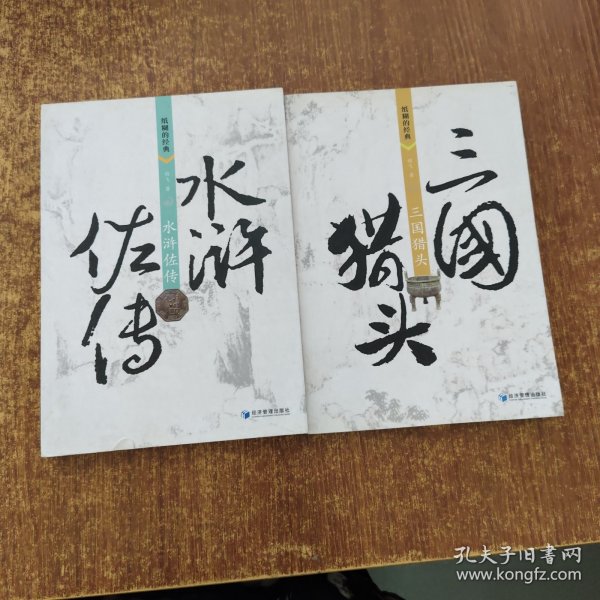 纸糊的经典
著
水浒佐传
水浒
佐传
经济管理出版社
纸糊的经典
著
三国猎头
三國
猎头
经济管理出版社
孔夫子旧书网
www.kongfz.com